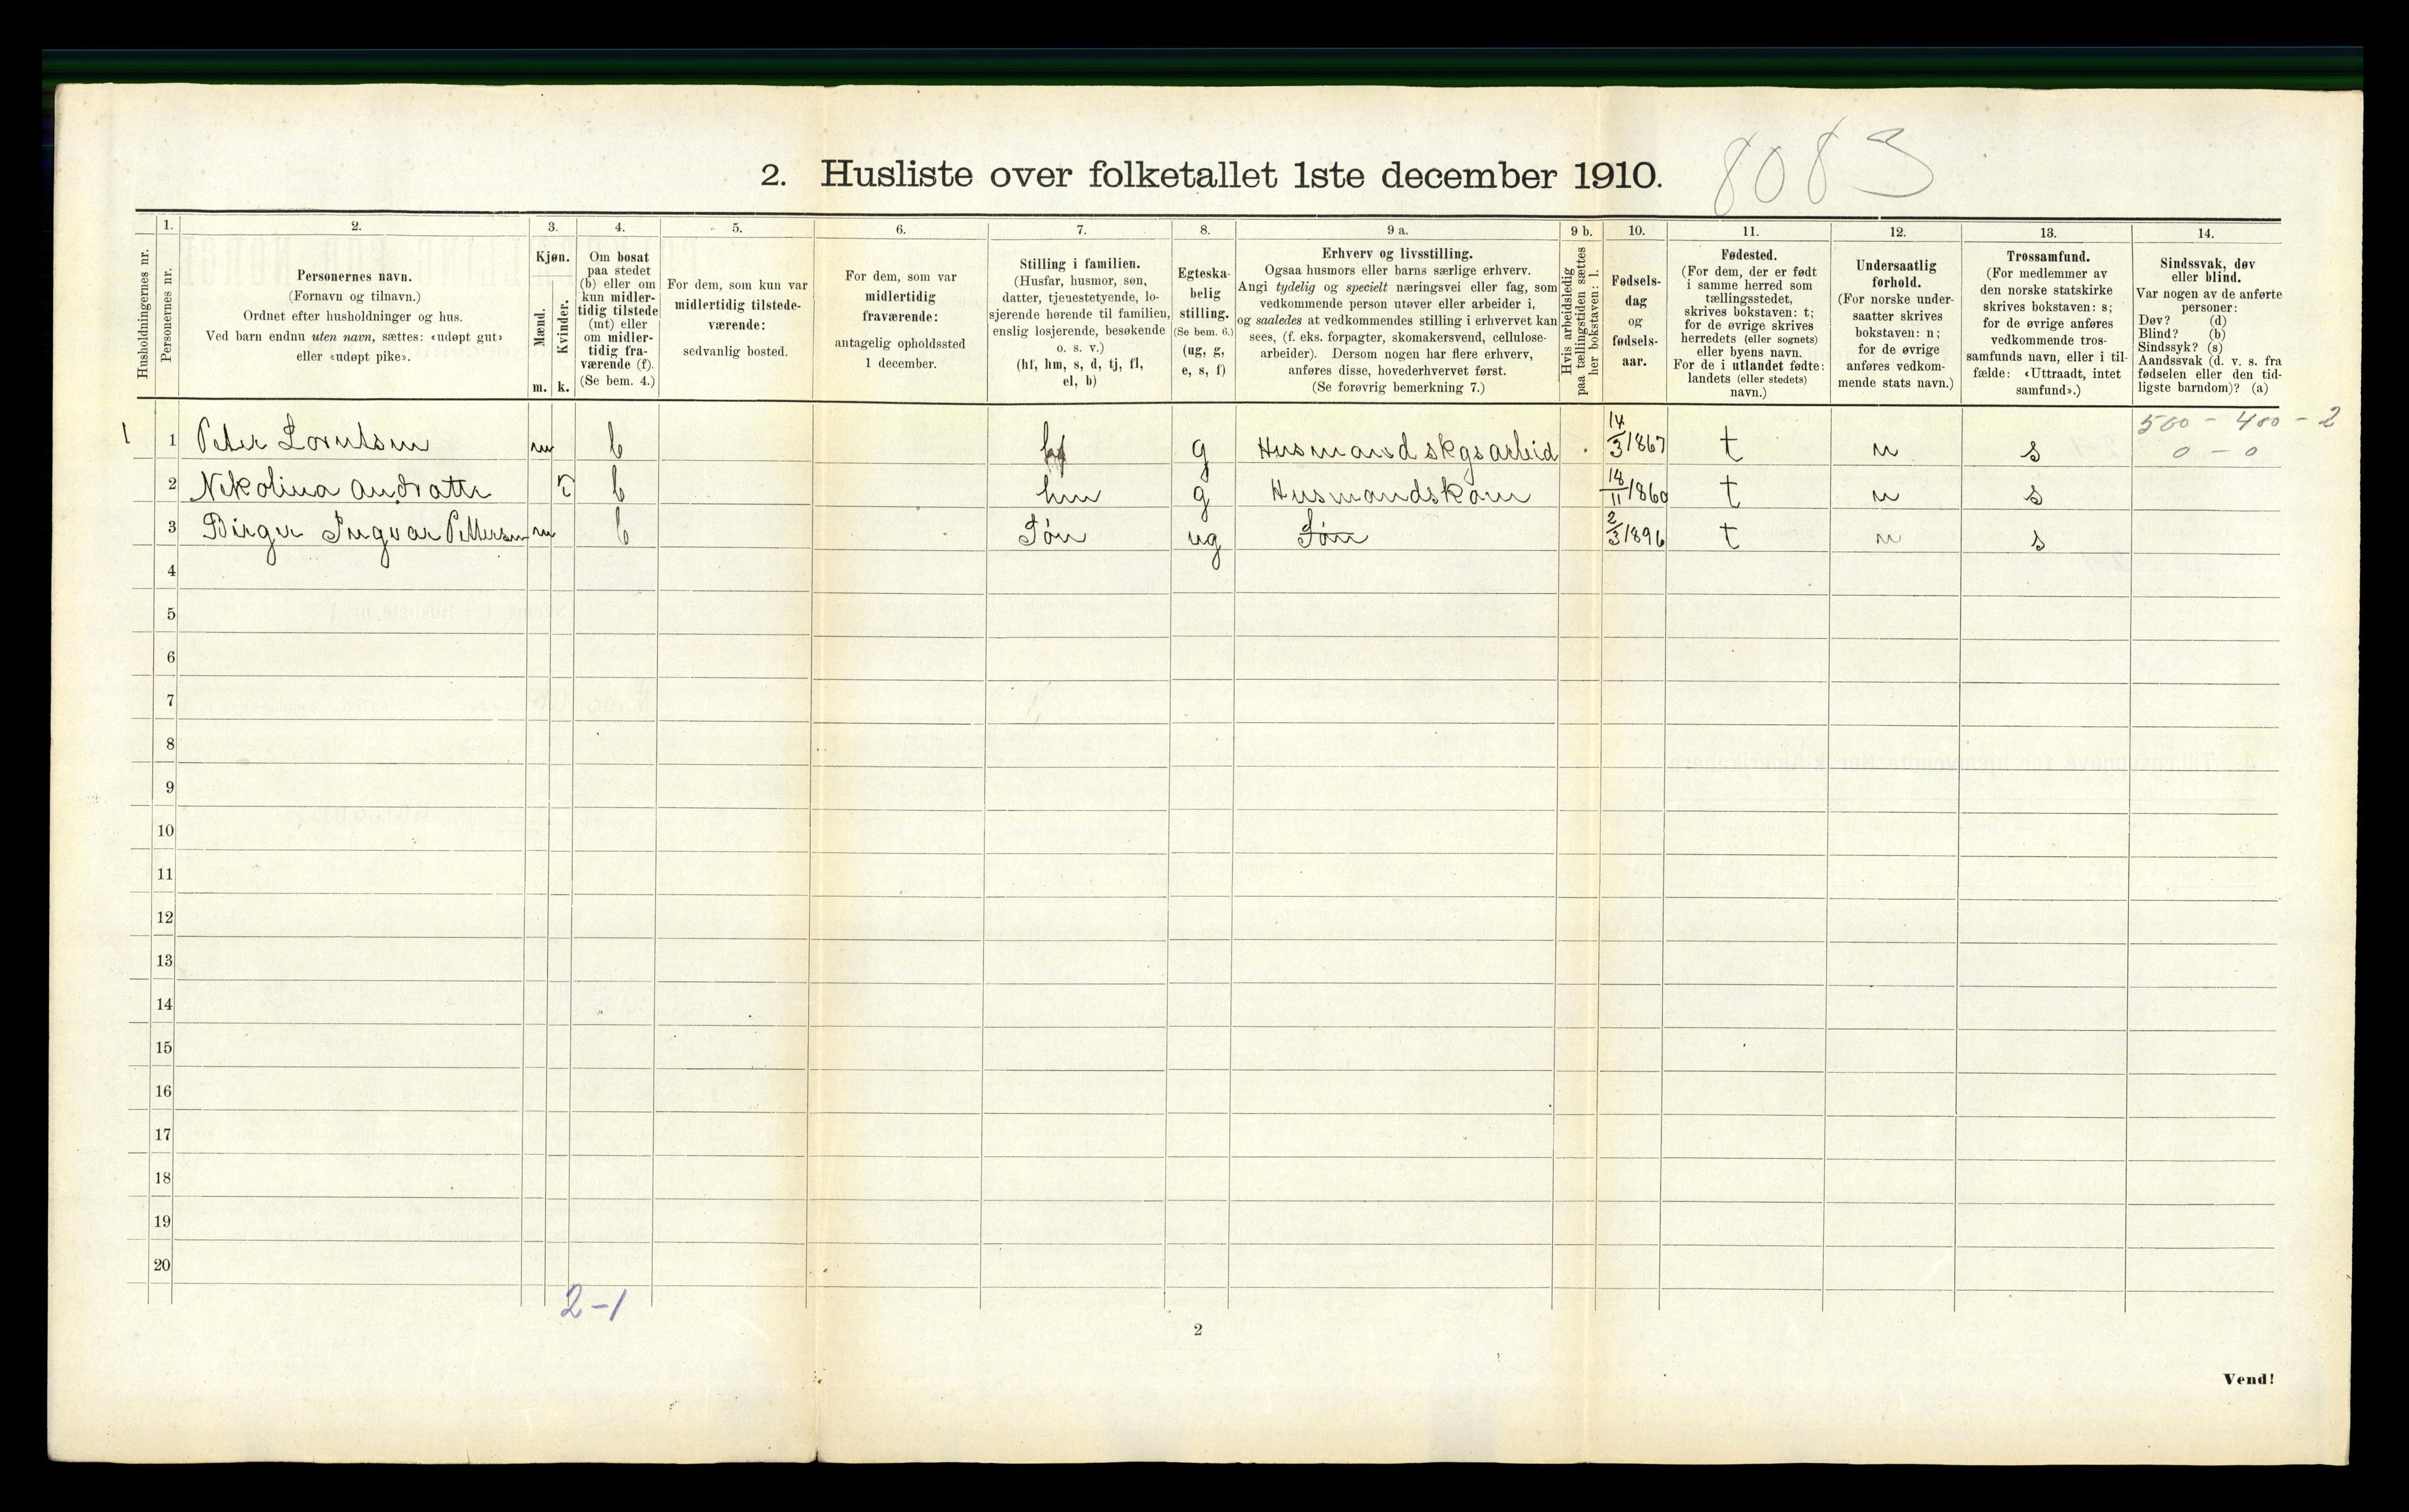 2. Husliste over folketallet 1ste december 1910. 8083
Husholdningernes nr.
1. Personernes nr.
2.
Personernes navn.
(Fornavn og tilnavn.)
Ordnet efter husholdninger og hus.
Ved barn endnu uten navn, sættes: «udøpt gut»
eller «udøpt pike».
3.
Kjøn.
Mænd. Kvinder.
m. k.
4.
Om bosat
paa stedet
(b) eller om
kun midler-
tidig tilstede
(mt) eller
om midler-
tidig fra-
værende (f).
(Se bem. 4.)
5.
For dem, som kun var
midlertidig tilstede-
værende:
sedvanlig bosted.
6.
For dem, som var
midlertidig
fraværende:
antagelig opholdssted
1 december.
7.
Stilling i familien.
(Husfar, husmor, søn,
datter, tjenestetyende, lo-
sjerende hørende til familien,
enslig losjerende, besøkende
o. s. v.)
(hf, hm, s, d, tj, fl,
el, b)
8.
Egteska-
belig
stilling.
(Se bem. 6.)
(ug, g,
e, s, f)
9 a.
Erhverv og livsstilling.
Ogsaa husmors eller barns særlige erhverv.
Angi tydelig og specielt næringsvei eller fag, som
vedkommende person utøver eller arbeider i,
og saaledes at vedkommendes stilling i erhvervet kan
sees, (f. eks. forpagter, skomakersvend, cellulose-
arbeider). Dersom nogen har flere erhverv,
anføres disse, hovederhvervet først.
(Se forøvrig bemerkning 7.)
9 b.
Hvis arbeidsledig
paa tællingstiden sættes
her bokstaven: l.
10.
Fødsels-
dag
og
fødsels-
aar.
11.
Fødested.
(For dem, der er født
i samme herred som
tællingsstedet,
skrives bokstaven: t;
for de øvrige skrives
herredets (eller sognets)
eller byens navn.
For de i utlandet fødte:
landets (eller stedets)
navn.)
12.
Undersaatlig
forhold.
(For norske under-
saatter skrives
bokstaven: n;
for de øvrige
anføres vedkom-
mende stats navn.)
13.
Trossamfund.
(For medlemmer av
den norske statskirke
skrives bokstaven: s;
for de øvrige anføres
vedkommende tros-
samfunds navn, eller i til-
fælde: «Uttraadt, intet
samfund».)
14.
Sindssvak, døv
eller blind.
Var nogen av de anførte
personer:
Døv? (d)
Blind? (b)
Sindssyk? (s)
Aandssvak (d. v. s. fra
fødselen eller den tid-
ligste barndom)? (a)
500 - 400 - 2
1 1 Peter Lorntsen m b hf g Husmand skgsarbeid 14/3 1867 t n s 0 - 0
2 Nikolina k b hm g Husmandskone 18/11 1860 t n s
3 Birger Ingvar Pettersen m b Søn ug Søn 2/3 1896 t n s
4
5
6
7
8
9
10
11
12
13
14
15
16
17
18
19
20
2-1
2
Vend!